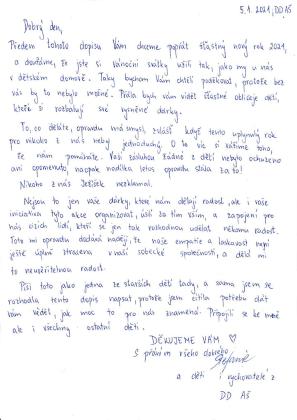 5.1.2021, DD AŠ
Dobrý den,
Předem tohoto dopisu Vám chceme popřát šťastný nový rok 2021,
a doufáme, že jste si vánoční svátky užili tak, jako my u nás
v dětském domově. Taky bychom Vám chtěli poděkovat, protože bez
vás by to nebylo možné. Přála bych vám vidět šťastné obličeje dětí,
kteří si rozbalují své vysněné dárky.
To, co děláte, opravdu má smysl, zvlášť když tento uplynulý rok
pro nikoho z nás nebyl jednoduchý. O to víc si vážíme toho,
že nám pomáháte. Vaší zásluhou žádné z dětí nebylo ochuzeno
ani opomenuto, naopak nadílka letos opravdu stála za to!
Nikoho z nás Ježíšek nezklamal.
Nejsou to jen vaše dárky, které nám dělají radost, ale i vaše
iniciativa tyto akce organizovat, úsilí za tím vším, a zapojení pro
nás cizích lidí, kteří se jen tak rozhodnou udělat někomu radost.
Toto mi opravdu dodává naději, že naše empatie a laskavost není
ještě úplně ztracena v naší sobecké společnosti, a dělá mi
to neuvěřitelnou radost.
Píši toto jako jedna ze starších dětí tady, a sama jsem se
rozhodla tento dopis napsat, protože jsem cítila potřebu dát
vám vědět, jak moc to pro nás znamená. Připojili se ke mně
ale i všechny ostatní děti.
DĚKUJEME VÁM ♡
S přáním všeho dobrého
a děti i vychovatelé z
DD AŠ